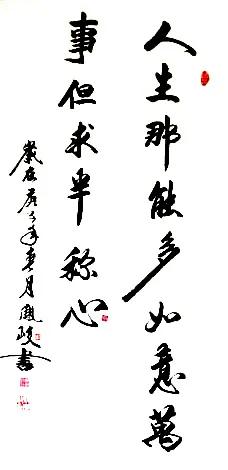 人生那能多如意萬
事但求半称心
歲在年春月書